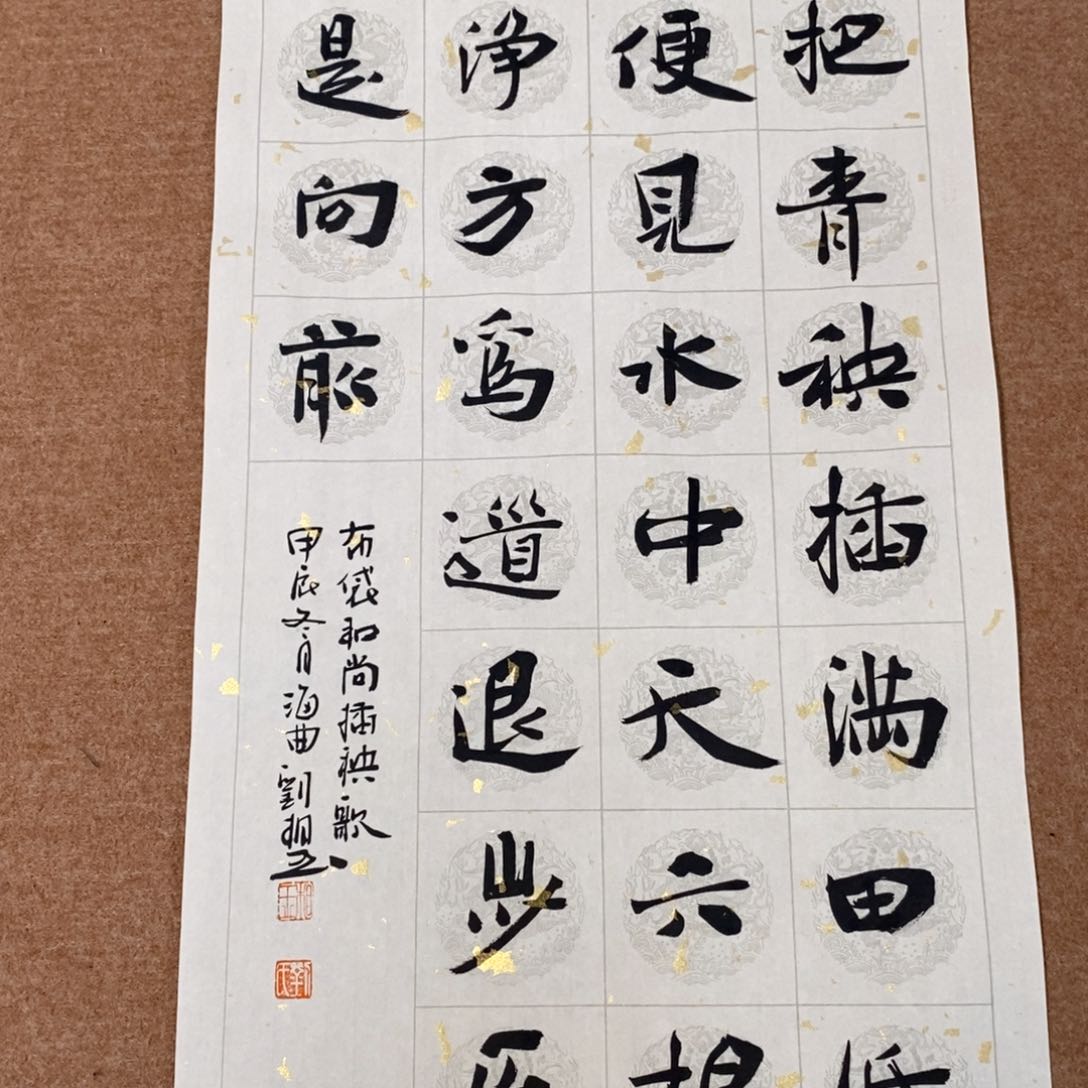 把青秧插满田低
便見水中天六根
淨方為道退步原
是向前
布袋和尚插秧歌
甲辰冬月海曲劉相玉